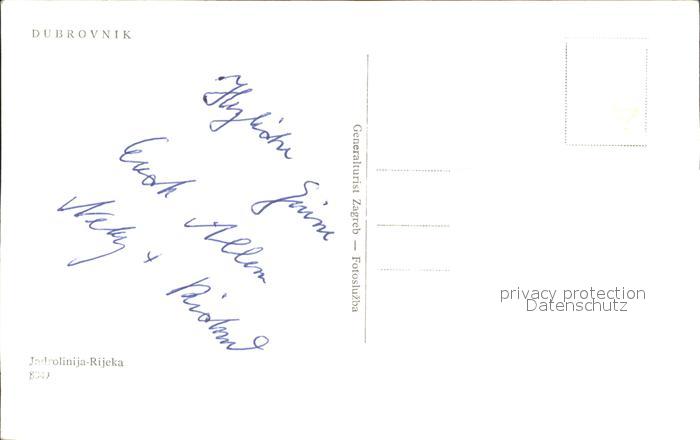 DUBROVNIK
Herzliche Grüsse
Euch Allen
+
Generalturist Zagreb — Fotoslužba
Jadrolinija-Rijeka
privacy protection
Datenschutz